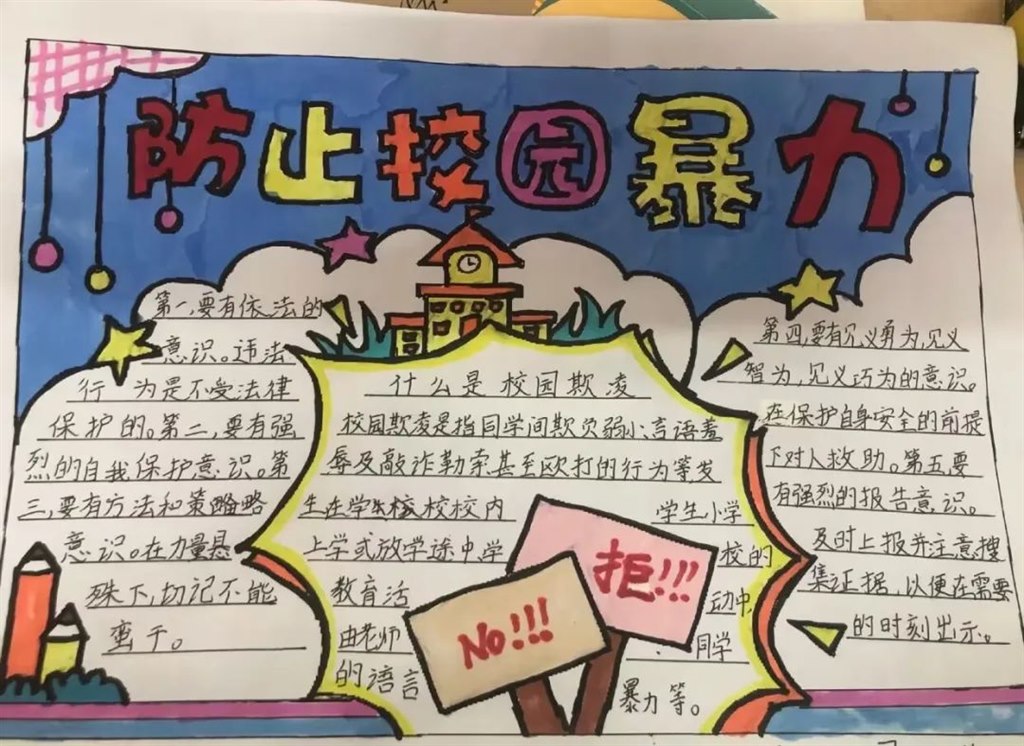 防止校园暴力
第一,要有依法的
意识。违法
行 为是不受法律
保护的。第二,要有强
烈的自我保护意识。第
三,要有方法和策略略
意识。在力量悬
殊下,切记不能
蛮干。
什么是校园欺凌
校园欺凌是指同学间欺负弱小、言语羞
辱及敲诈勒索甚至欧打的行为等发
生在学校校校内 学生小学
上学或放学途中、学 校的
教育活 动中,
由老师 同学
的语言 暴力等。
NO!!!
拒!!!
第四,要有见义勇为,见义
智为,见义巧为的意识。
在保护自身安全的前提
下对人救助。第五,要
有强烈的报告意识。
及时上报并注意搜
集证据,以便在需要
的时刻出示。